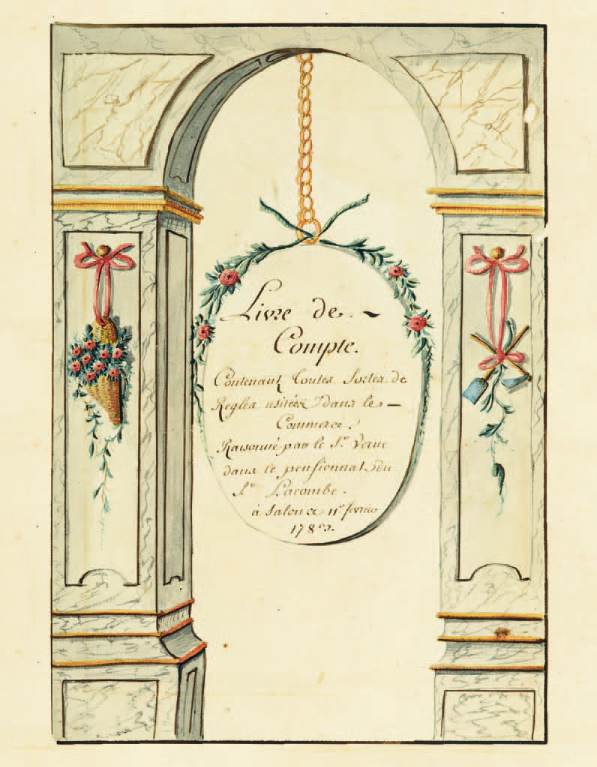 Livre de
Compte.
Contenant toutes Sortes de
Regles usitées dans le
Commerce.
Raisonné par le Sr. Verne
dans le pensionnat du
Sr. Lacombe.
à Salon ce 11e. fevrier
178